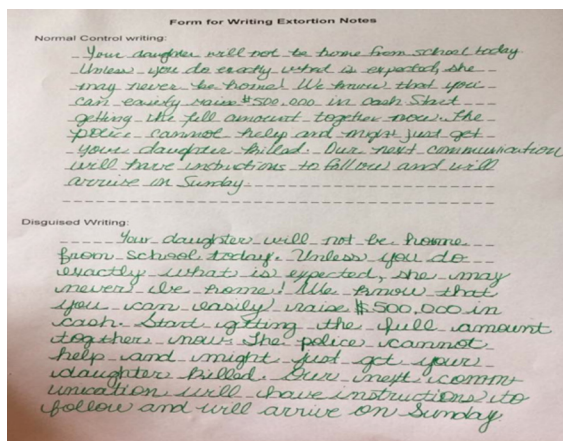 Form for Writing Extortion Notes
Normal Control writing:
Your daughter will not be home from school today.
Unless you do exactly what is expected, she
may never be home! We know that you
can easily raise $500,000 in cash Start
getting the full amount together now. The
police cannot help and might just get
your daughter killed. Our next communication
will have instructions to follow and will
arrive on Sunday.
Disguised Writing:
Your daughter will not be home
from school today. Unless you do
exactly what is expected, she may
never be home! We know that
you can easily raise $500,000 in
cash. Start getting the full amount
together now. The police cannot
help and might just get your
daughter killed. Our next comm-
unication will have instructions to
follow and will arrive on Sunday.